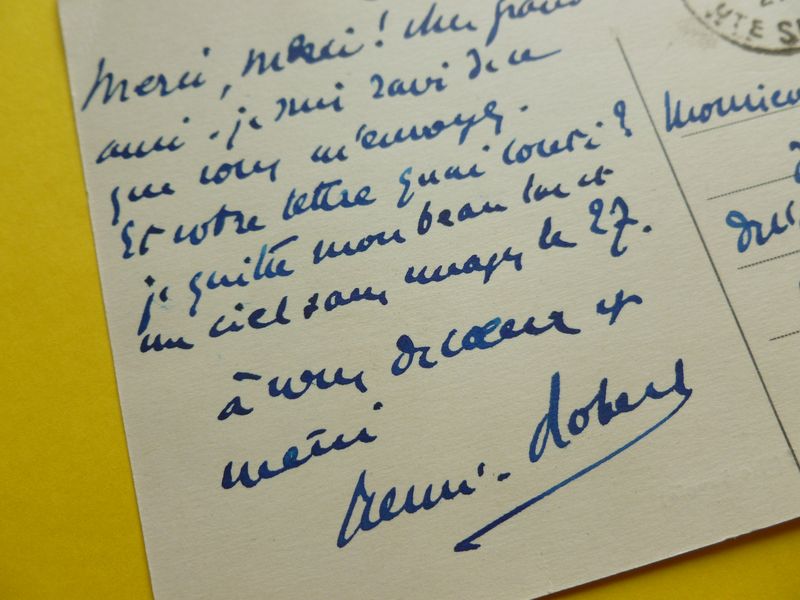 Merci, merci ! cher grand
ami. je suis ravi de ce
que vous m'envoyez.
Et votre lettre quai conti ?
je quitte mon beau lac et
un ciel sans nuages le 27.
à vous de cœur et
merci
Henri-Robert
UTE S
Monsieu